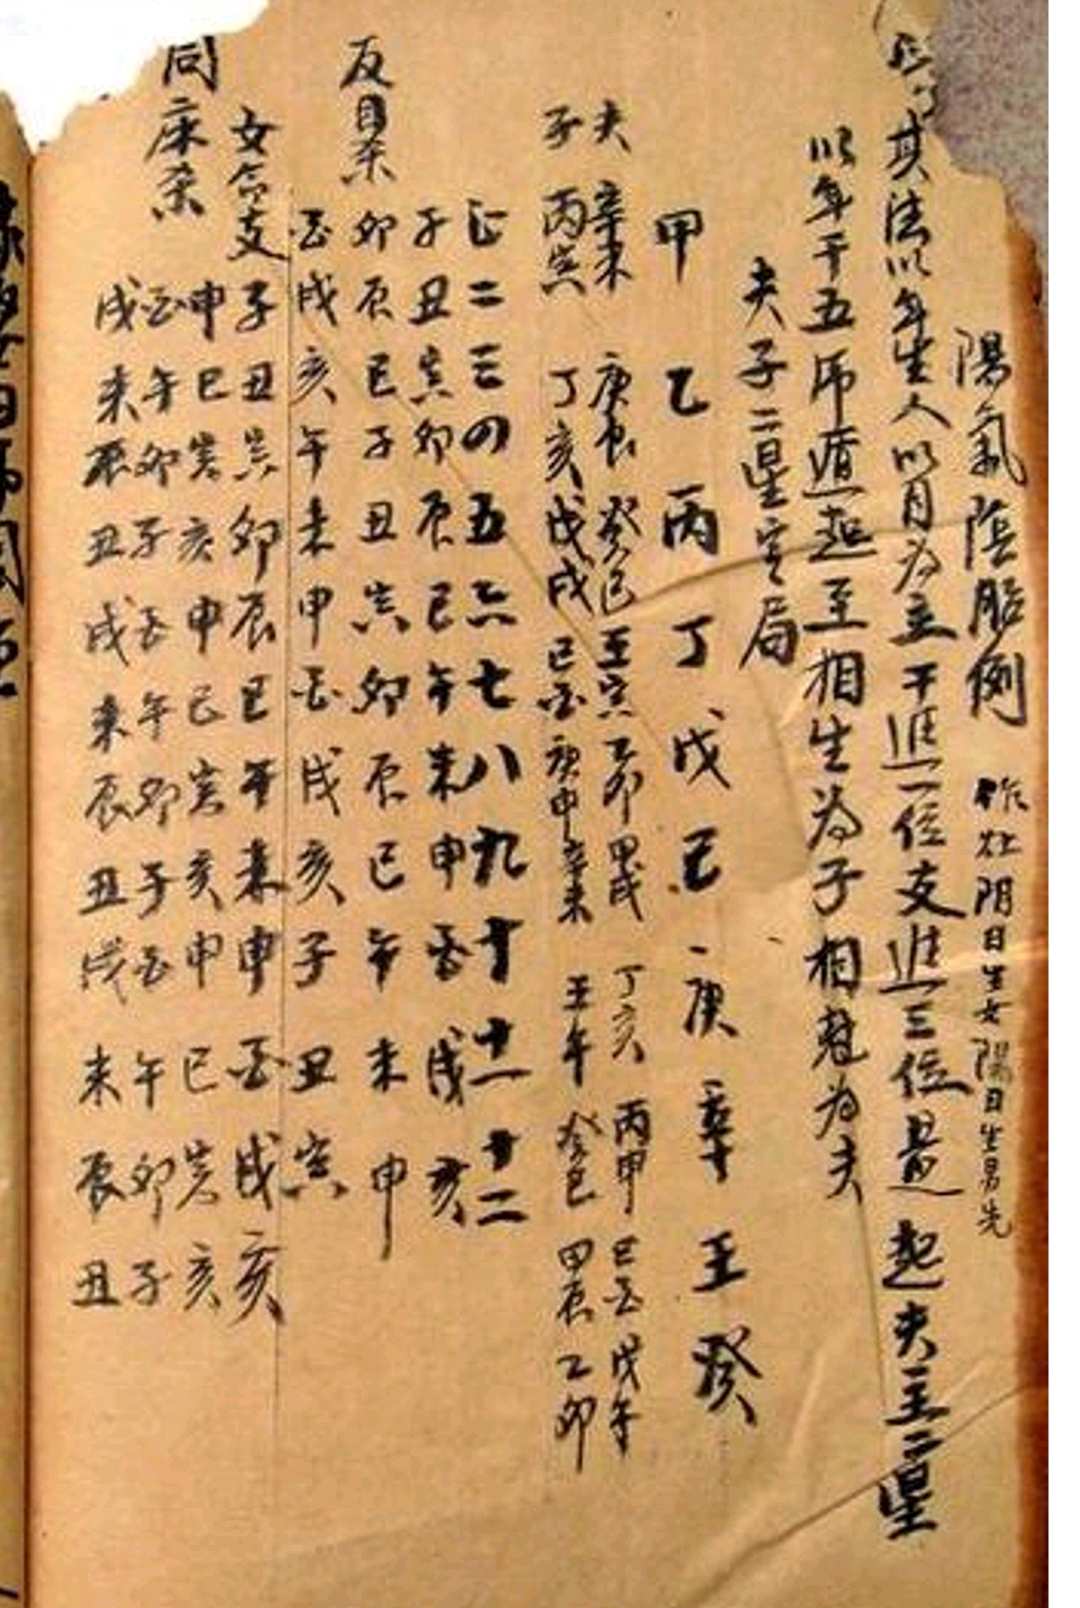 陽氣陰胎例 作灶阴日生女陽日生男先
其法以年生人以月为主干進一位支進三位是起夫主二星
以年干五乕遁起至相生为子相尅为夫
夫子二星定局
甲乙丙丁戊己庚辛壬癸
夫 辛未 庚辰 癸巳 壬寅 乙卯 甲戌 丁亥 丙申 己酉 戊午
子 丙寅 丁亥 戊戌 己酉 庚申 辛未 壬午 癸巳 甲辰 乙卯
正二三四五六七八九十十一十二
子丑寅卯辰巳午未申酉戌亥
反目杀 卯辰巳子丑寅卯辰巳午未申
酉戌亥午未申酉戌亥子丑寅
女命支 子丑寅卯辰巳午未申酉戌亥
同床杀 申巳寅亥申巳寅亥申巳寅亥
酉午卯子酉午卯子酉午卯子
戌未辰丑戌未辰丑戌未辰丑